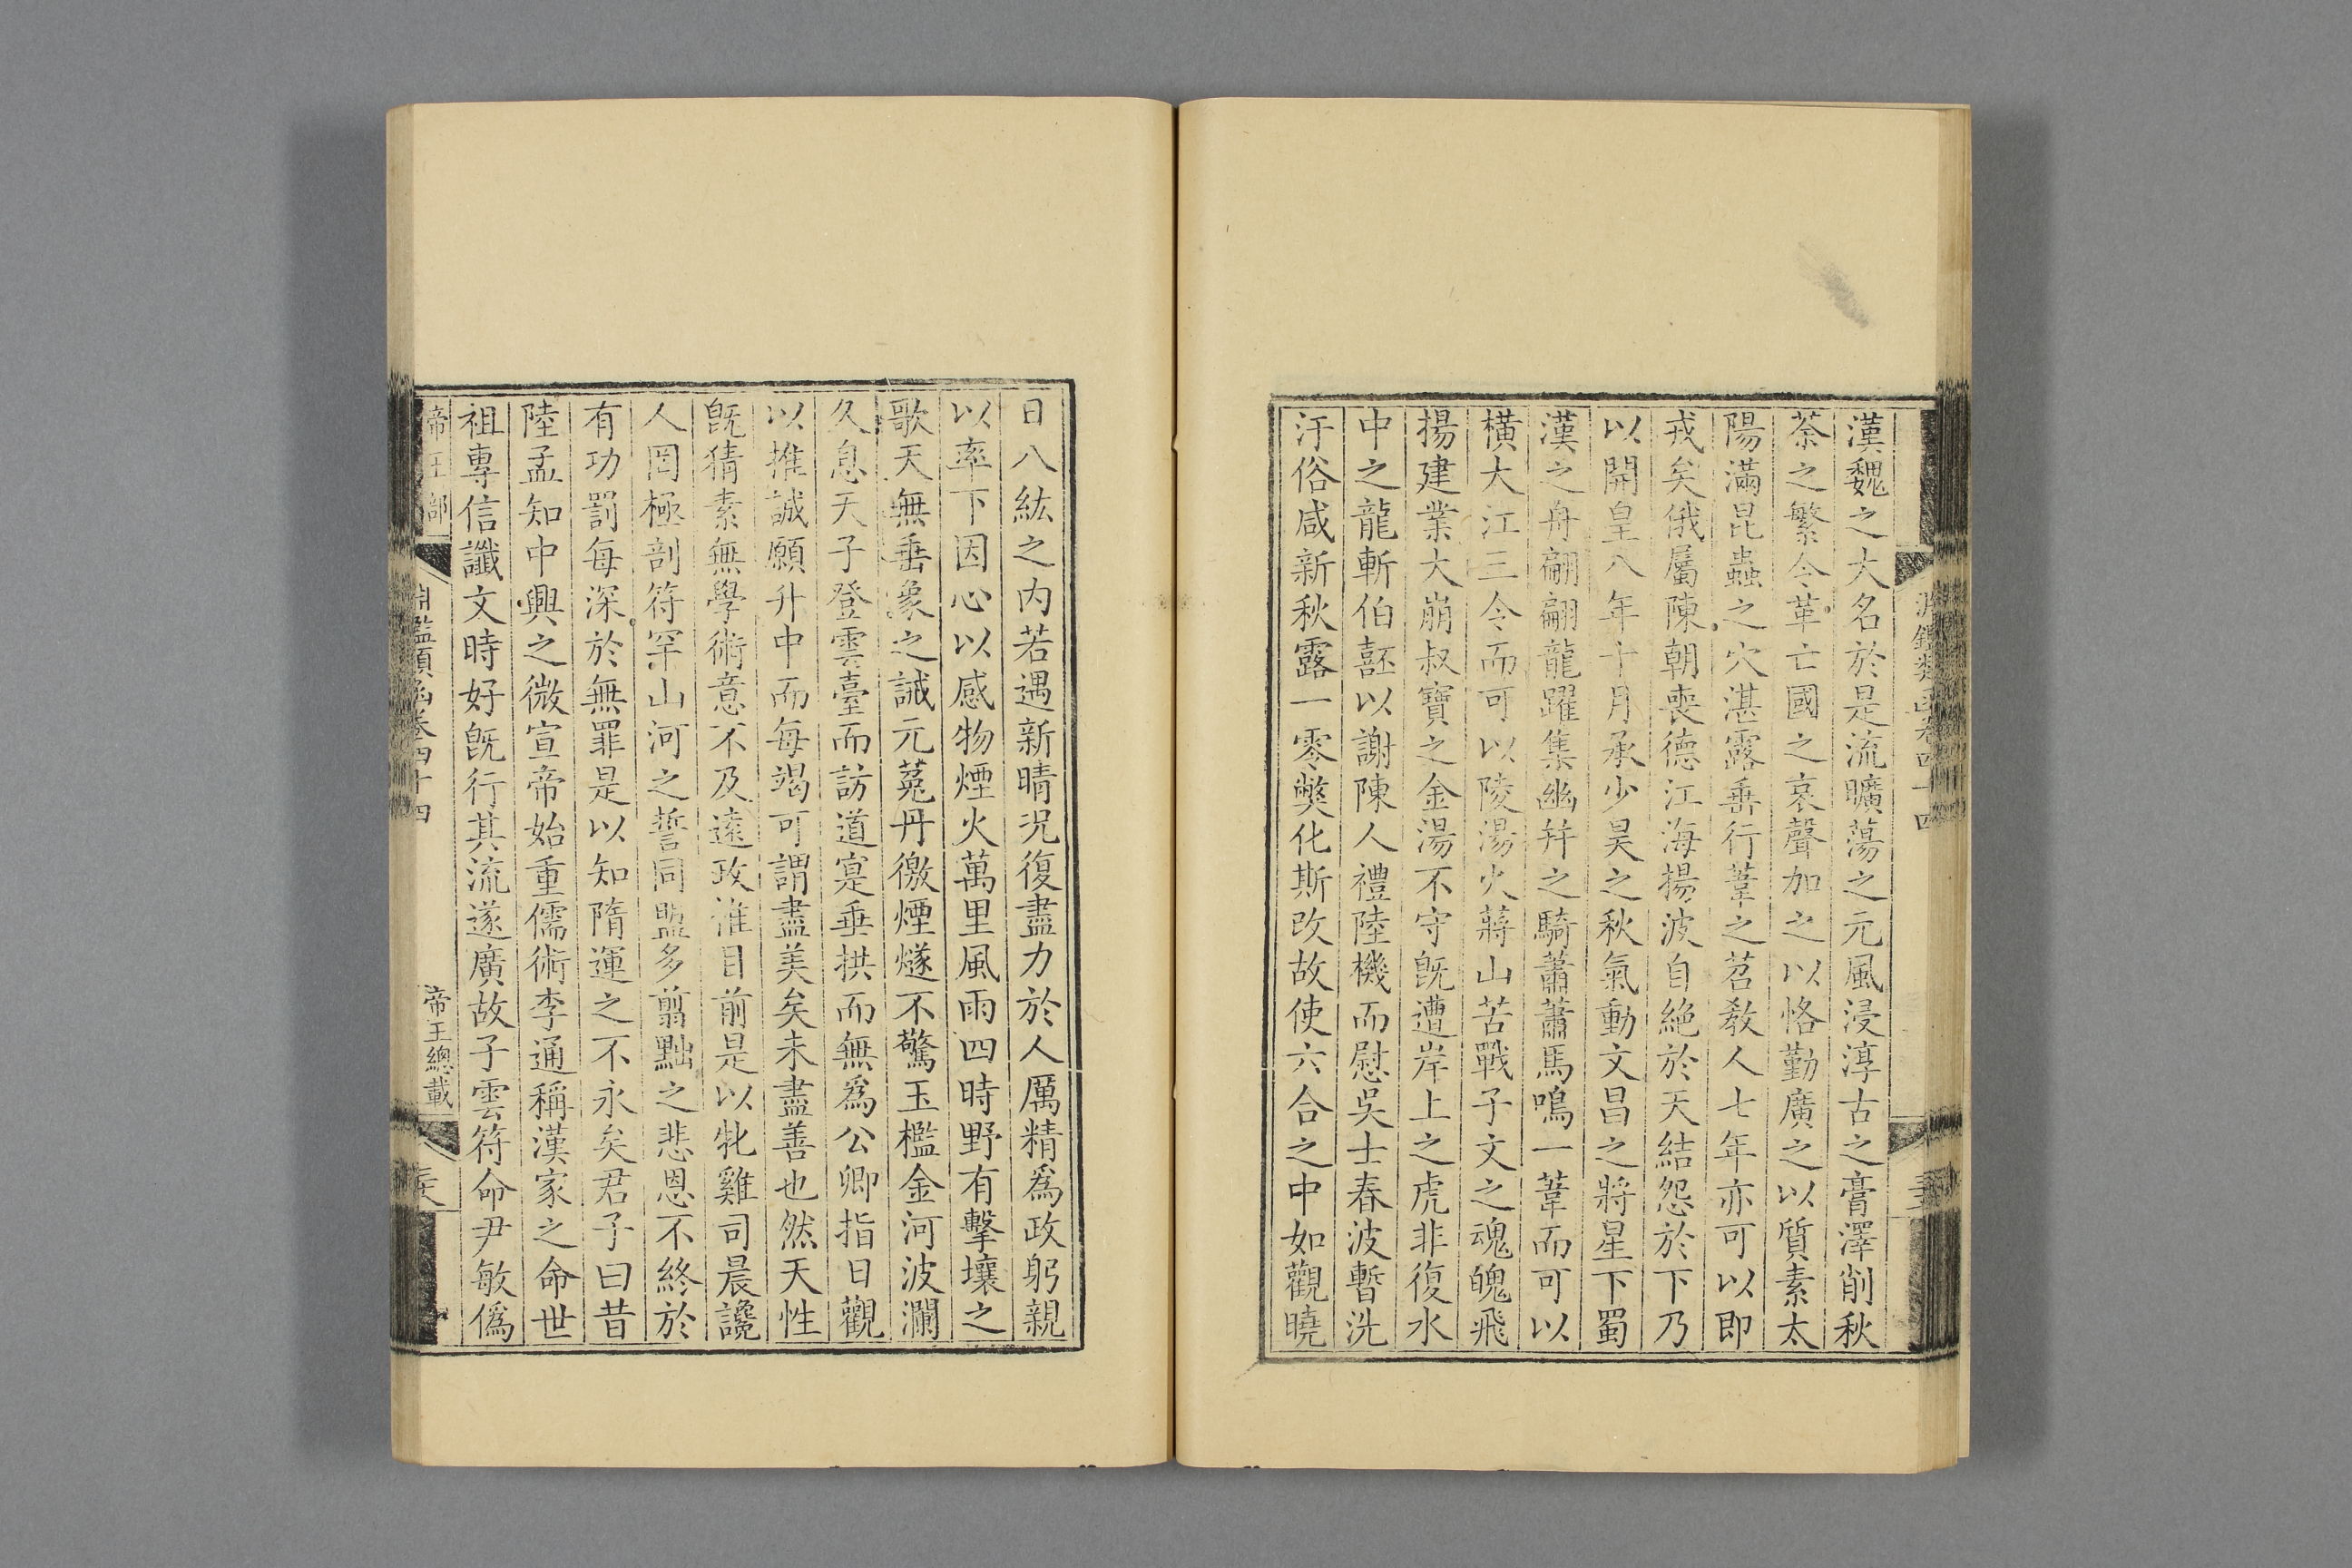 漢魏之大名於是流曠蕩之元風浸淳古之膏澤削秋
荼之繁令革亡國之哀聲加之以恪勤廣之以質素太
陽滿昆蟲之穴湛露垂行葦之苕教人七年亦可以即
戎矣俄屬陳朝喪德江海揚波自絶於天結怨於下乃
以開皇八年十月承少昊之秋氣動文昌之將星下蜀
漢之舟翩翩龍躍集幽并之騎蕭蕭馬鳴一葦而可以
橫大江三令而可以陵湯火蔣山苦戰子文之魂魄飛
揚建業大崩叔寶之金湯不守旣遭岸上之虎非復水
中之龍斬伯嚭以謝陳人禮陸機而慰吳士春波暫洗
汙俗咸新秋露一零獘化斯改故使六合之中如觀曉
日八紘之内若遇新晴況復盡力於人厲精爲政躬親
以率下因心以感物煙火萬里風雨四時野有擊壤之
歌天無垂象之誡元菟丹徼煙燧不驚玉檻金河波瀾
久息天子登雲臺而訪道寔垂拱而無爲公卿指日觀
以推誠願升中而每竭可謂盡美矣未盡善也然天性
旣猜素無學術意不及遠政惟目前是以牝雞司晨讒
人罔極剖符罕山河之誓同盟多翦黜之悲恩不終於
有功罰每深於無罪是以知隋運之不永矣君子曰昔
陸孟知中興之微宣帝始重儒術李通稱漢家之命世
祖專信讖文時好旣行其流遂廣故子雲符命尹敏僞
帝王部
淵鑑類函卷四十四
帝王總載